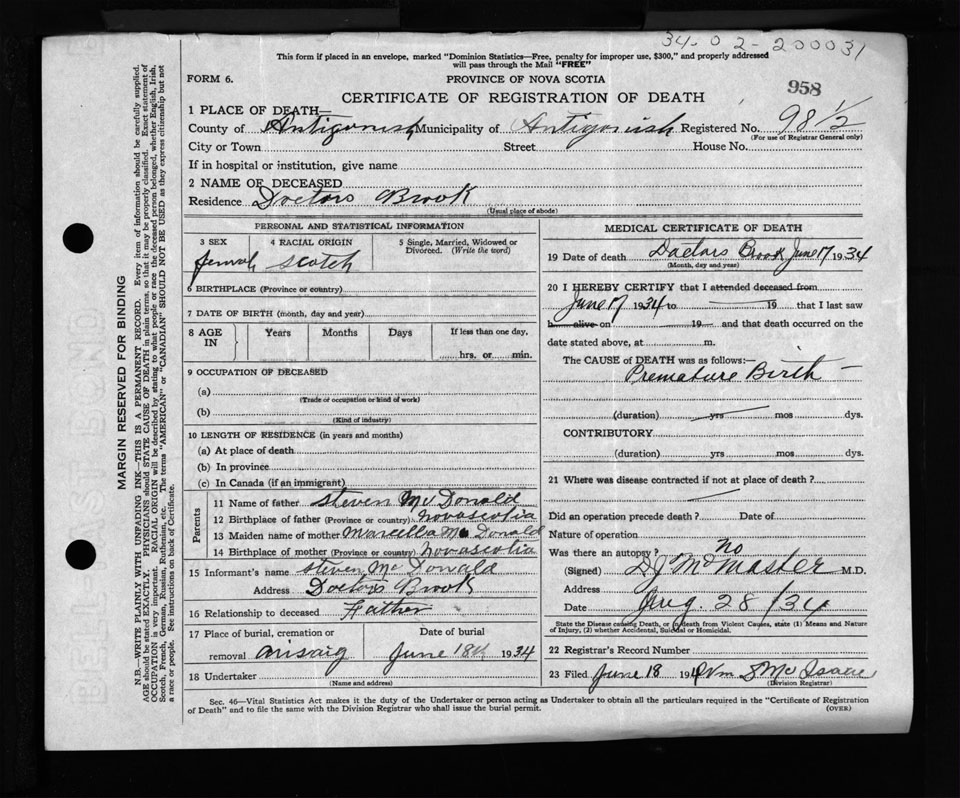 34-02-200031
This form if placed in an envelope, marked "Dominion Statistics—Free, penalty for improper use, $300," and properly addressed
will pass through the Mail "FREE"
FORM 6.
PROVINCE OF NOVA SCOTIA
958
CERTIFICATE OF REGISTRATION OF DEATH
1 PLACE OF DEATH—
County of Antigonish Municipality of Antigonish Registered No. 98 1/2
(For use of Registrar General only)
City or Town Street House No.
If in hospital or institution, give name
2 NAME OF DECEASED
Residence Doctors Brook
(Usual place of abode)
PERSONAL AND STATISTICAL INFORMATION
3 SEX
female
4 RACIAL ORIGIN
Scotch
5 Single, Married, Widowed or
Divorced. (Write the word)
6 BIRTHPLACE (Province or country)
7 DATE OF BIRTH (month, day and year)
8 AGE IN Years Months Days If less than one day,
hrs. or min.
9 OCCUPATION OF DECEASED
(a)
(Trade of occupation or kind of work)
(b)
(Kind of industry)
10 LENGTH OF RESIDENCE (in years and months)
(a) At place of death
(b) In province
(c) In Canada (if an immigrant)
Parents
11 Name of father Steven McDonald
12 Birthplace of father (Province or country) Novascotia
13 Maiden name of mother Marcella McDonald
14 Birthplace of mother (Province or country) Novascotia
15 Informant's name Steven McDonald
Address Doctors Brook
16 Relationship to deceased Father
17 Place of burial, cremation or Date of burial
removal Arisaig June 18th 1934
18 Undertaker
(Name and address)
MEDICAL CERTIFICATE OF DEATH
19 Date of death Doctors Brook June 17 1934
(Month, day and year)
20 I HEREBY CERTIFY that I attended deceased from
June 17 1934 to 19 that I last saw
h alive on 19 and that death occurred on the
date stated above, at m.
The CAUSE of DEATH was as follows:—
Premature Birth —
(duration) yrs mos dys.
CONTRIBUTORY
(duration) yrs mos dys.
21 Where was disease contracted if not at place of death?
Did an operation precede death? Date of
Nature of operation
Was there an autopsy? No
(Signed) McMaster M.D.
Address
Date Aug. 28/34
State the Disease causing Death, or, death from Violent Causes, state (1) Means and Nature
of Injury, (2) whether Accidental, Suicidal or Homicidal.
22 Registrar's Record Number
23 Filed June 18 19 Wm McIsaac
(Division Registrar)
Sec. 46—Vital Statistics Act makes it the duty of the Undertaker or person acting as Undertaker to obtain all the particulars required in the "Certificate of Registration
of Death" and to file the same with the Division Registrar who shall issue the burial permit.
(OVER)
MARGIN RESERVED FOR BINDING
N.B.—WRITE PLAINLY WITH UNFADING INK—THIS IS A PERMANENT RECORD. Every item of information should be carefully supplied.
AGE should be stated EXACTLY. PHYSICIANS should STATE CAUSE OF DEATH in plain terms, so that it may be properly classified. Exact statement of
OCCUPATION is very important. RACIAL ORIGIN will be described by stating to what people or race the deceased person belonged, whether English, Irish,
Scotch, French, German, Russian, Ruthenian, etc. The terms "AMERICAN" or "CANADIAN" SHOULD NOT BE USED as they express citizenship but not
a race or people. See instructions on back of Certificate.